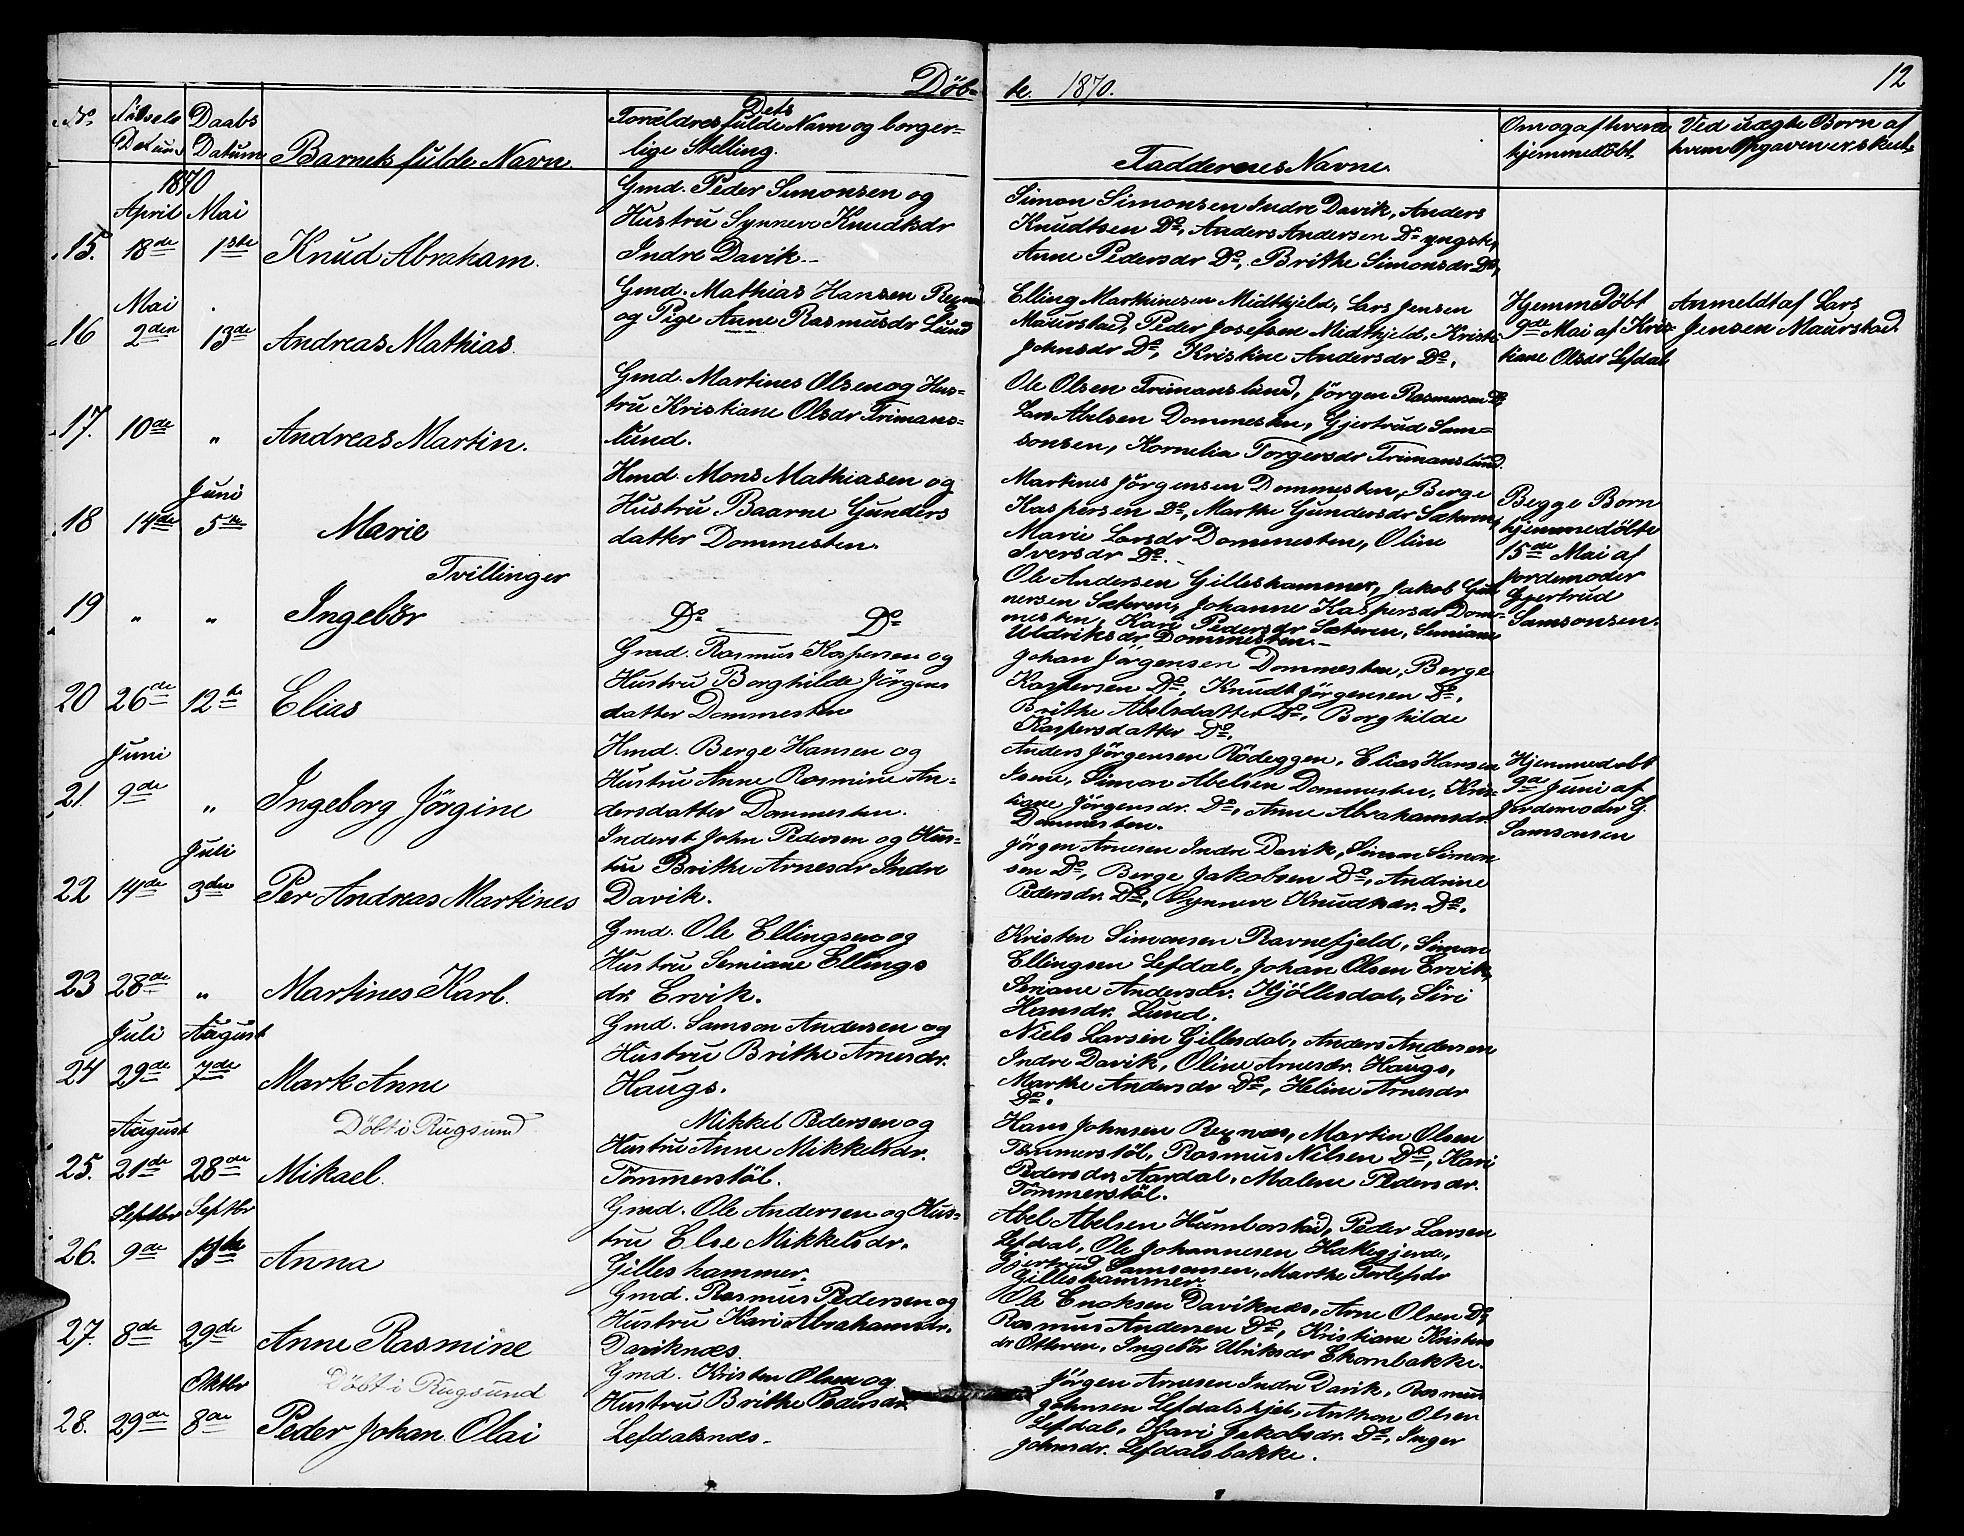 Döb- te. 1870. 12
No. Födsels Datum Daabs Datum Barnets fulde Navn. Forældres fulde Navn og borger-
Dets
lige Stilling. Faddernes Navne. Om og af hvem hjemmedöbt. Ved uægte Börn af hvem Opgaven er skeet.
1870
April Mai
15. 18de 1ste Knud Abraham.
Gmd. Peder Simonsen og
Hustru Synneve Knudtsdr
Indre Davik.
Simon Simonsen Indre Davik, Anders
Knudtsen Do, Anders Andersen Do yngste,
Anne Pedersdr Do, Brithe Simonsdr Do,
Mai
16 2den 13de Andreas Mathias.
Gmd. Mathias Hansen
og Pige Anne Rasmusdr Lund
Elling Marthinesen Midthjeld, Lars Jensen
Maurstad, Peder Josefsen Midthjeld, Kristi
Johnsdr Do, Kristine Andersdr Do.
Hjemmedöbt
9de Mai af Kris-
tiane Olsdr Lefdal
Anmeldt af Lars
Jensen Maurstad.
17. 10de " Andreas Martin.
Gmd. Martines Olsen og Hus-
tru Kristiane Olsdr Frimans-
lund.
Ole Olsen Frimanslund, Jörgen Rasmusen Do,
Lars Abelsen Dommesten, Gjertrud Sam-
sonsen, Kornelia Torgersdr Frimanslund.
Juni
18 14de 5te Marie
Tvillinger
Hmd. Mons Mathiasen og
Hustru Baarne Gunders
datter Dommesten.
Martines Jörgensen Dommesten, Berge
Kaspersen Do, Marthe Gundersdr Sæteren,
Marie Larsdr Dommesten, Oline
Iversdr Do.
Begge Börn
hjemmedöbte
15de Mai af
Jordemoder
Gjertrud
Samsonsen.
19 " " Ingebör
Do Do
Ole Andersen Gilleshammer, Jakob Gun-
nersen Sæteren, Johanne Kaspersdr Dom-
mesten, Kari Pedersdr Sæteren, Semiane
Uldriksdr Dommesten.
20 26de 12te Elias
Gmd. Rasmus Kaspersen og
Hustru Borghilde Jörgens
datter Dommesten
Johan Jörgensen Dommesten, Berge
Kaspersen Do, Knudt Jörgensen Do,
Brithe Abelsdatter Do, Borghilde
Kaspersdatter Do.
Juni
21. 9de " Ingeborg Jörgine
Hmd. Berge Hansen og
Hustru Anne Rasmine An-
dersdatter Dommesten.
Anders Jörgensen Rödeggen, Elias Hansen
Isene, Simon Abelsen Dommesten, Kris-
tiane Jörgensdr. Do, Anne Abrahamsdr.
Dommesten.
Hjemmedöbt
9de Juni af
Jordemoder G.
Samsonsen
Juli
22 14de 3den Per Andreas Martines
Inderst John Pedersen og Hus-
tru Brithe Arnesdr Indre
Davik.
Jörgen Arnesen Indre Davik, Simon Simon-
sen Do, Berge Jakobsen Do, Andrine
Pedersdr. Do, Synneve Knudtsdr. Do.
23 28de " Martines Karl.
Gmd. Ole Ellingsen og
Hustru Semiane Ellings
dr. Ervik.
Kristen Simonsen Ravnefjeld, Simon
Ellingsen Lefdal, Johan Olsen Ervik,
Seriane Andersdr. Hjöllesdal, Siri
Hansdr. Lund.
Juli August
24 29de 7de Mark Anne
Gmd. Samson Andersen og
Hustru Brithe Arnesdr.
Haugs.
Niels Larsen Gillesdal, Anders Andersen
Indre Davik, Oline Arnesdr. Haugs,
Marthe Andersdr Do, Heline Arnesdr
Do.
August Döbt i Rugsund
25. 21de 28de Mikael.
Mikkel Pedersen og
Hustru Anne Mikkelsdr.
Tömmerstöl.
Hans Johnsen Reynæs, Martin Olsen
Tömmerstöl, Rasmus Nilsen Do, Kari
Pedersdr. Aardal, Malene Pedersdr.
Tömmerstöl.
Septbr Septbr
26. 9de Anna
Gmd. Ole Andersen og Hus-
tru Else Mikkelsdr.
Gilleshammer.
Abel Abelsen Humborstad, Peder Larsen
Lefdal, Ole Johannesen Hakegjerde,
Gjertrud Samsonsen, Marthe Torlefsdr
Gilleshammer.
27. 8de 29de Anne Rasmine
Gmd. Rasmus Pedersen og
Hustru Kari Abrahamsdr.
Daviknæs.
Ole Enoksen Daviknæs, Arne Olsen Do,
Rasmus Andersen Do, Kristiane Kristens
dr Otteren, Ingebör Ulriksdr Ekornbakke.
Oktbr Döbt i Rugsund
28. 29de 8de Peder Johan Olai
Gmd. Kristen Olsen og
Hustru Brithe Pedersdr.
Lefdalsnæs.
Jörgen Arnesen Indre Davik, Rasmus
Johnsen Lefdalshjel, Anthon Olsen
Lefdal, Kari Jakobsdr. Do, Inger
Johnsdr. Lefdalsbakke.